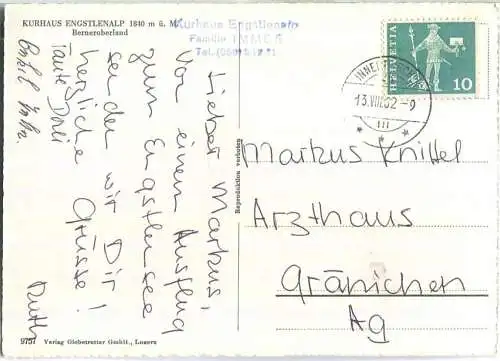 KURHAUS ENGSTLENALP 1840 m ü. M.
Berneroberland
Kurhaus Engstlenalp
Familie IMMER
Tel.
HELVETIA
10
13.VIII.62
III
Lieber Markus,
Von einem Ausflug
zum Engstlensee
senden wir Dir
herzliche Grüsse!
Tante Dori
Onkel
Ruth
Reproduktion verboten
Markus Knittel
Arzthaus
Gränichen
Ag
9757 Verlag Globetrotter GmbH., Luzern